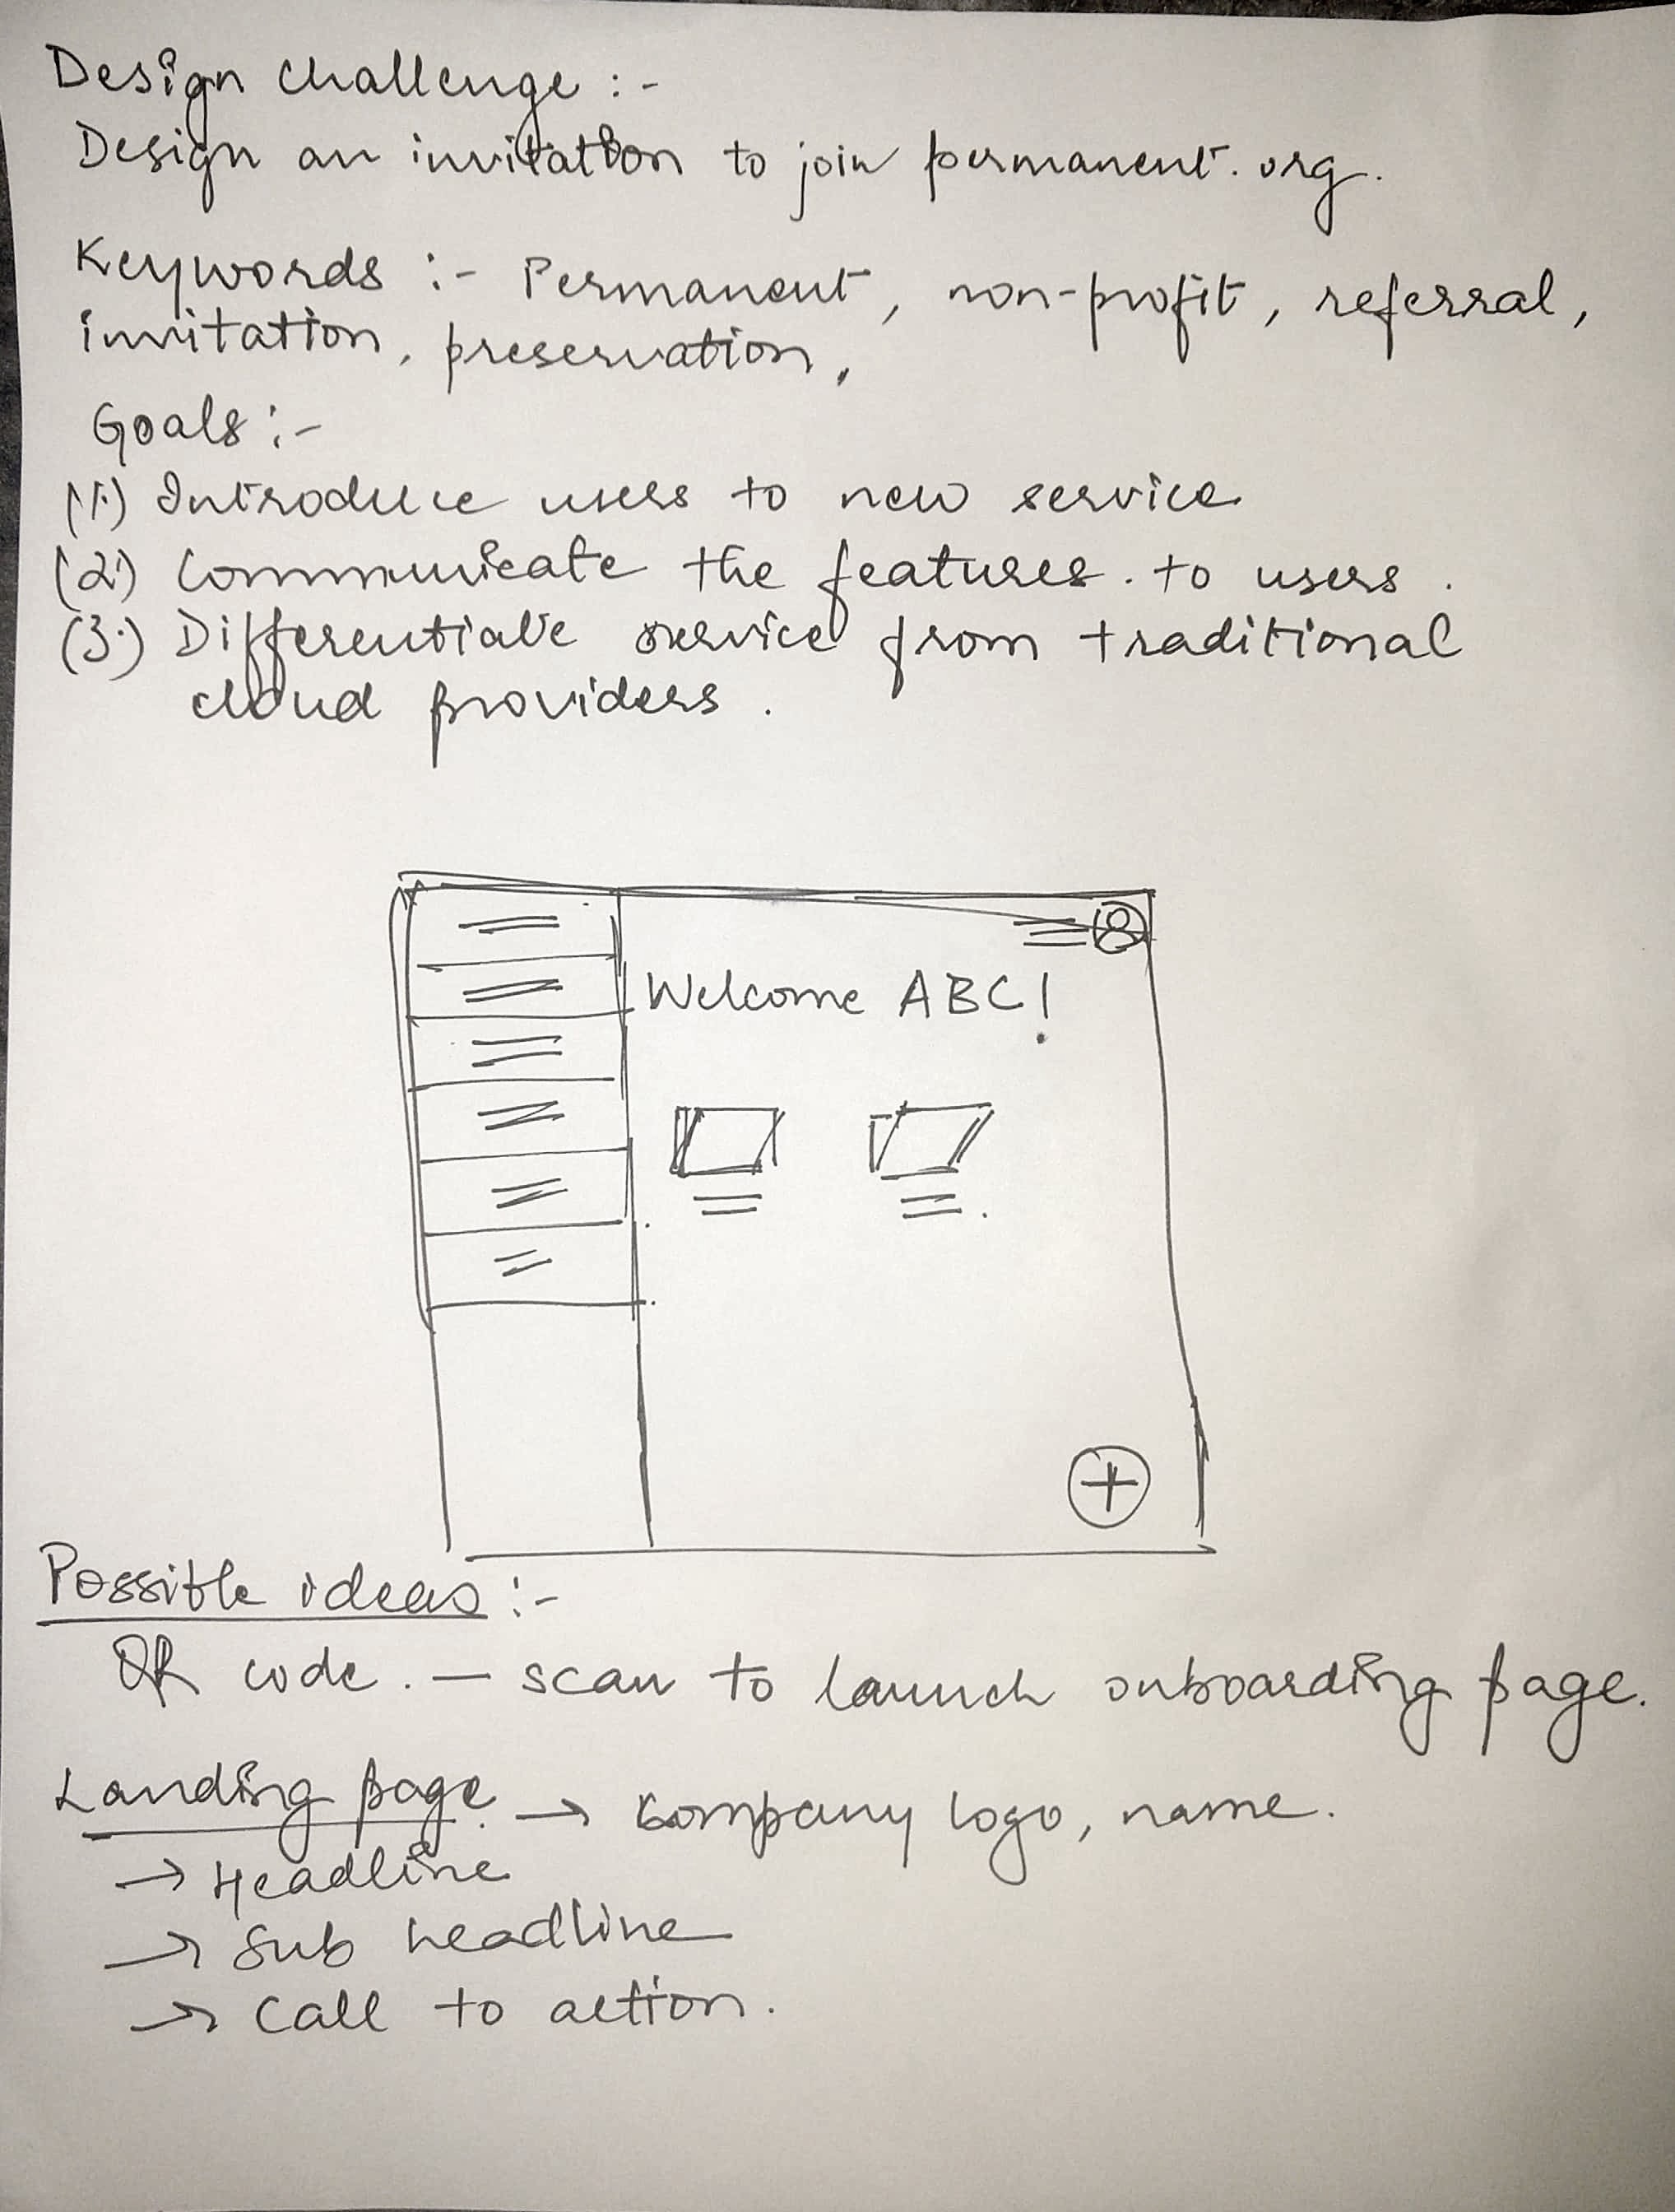 Design challenge :-
Design an invitation to join permanent.org.
Keywords :- Permanent, non-profit, referral,
invitation, preservation,
Goals :-
(1.) Introduce users to new service
(2.) Communicate the features. to users.
(3.) Differentiate service from traditional
cloud providers.
Welcome ABC!
Possible ideas :-
QR code. — scan to launch onboarding page.
Landing page. → Company logo, name.
→ Headline
→ Sub headline
→ Call to action.